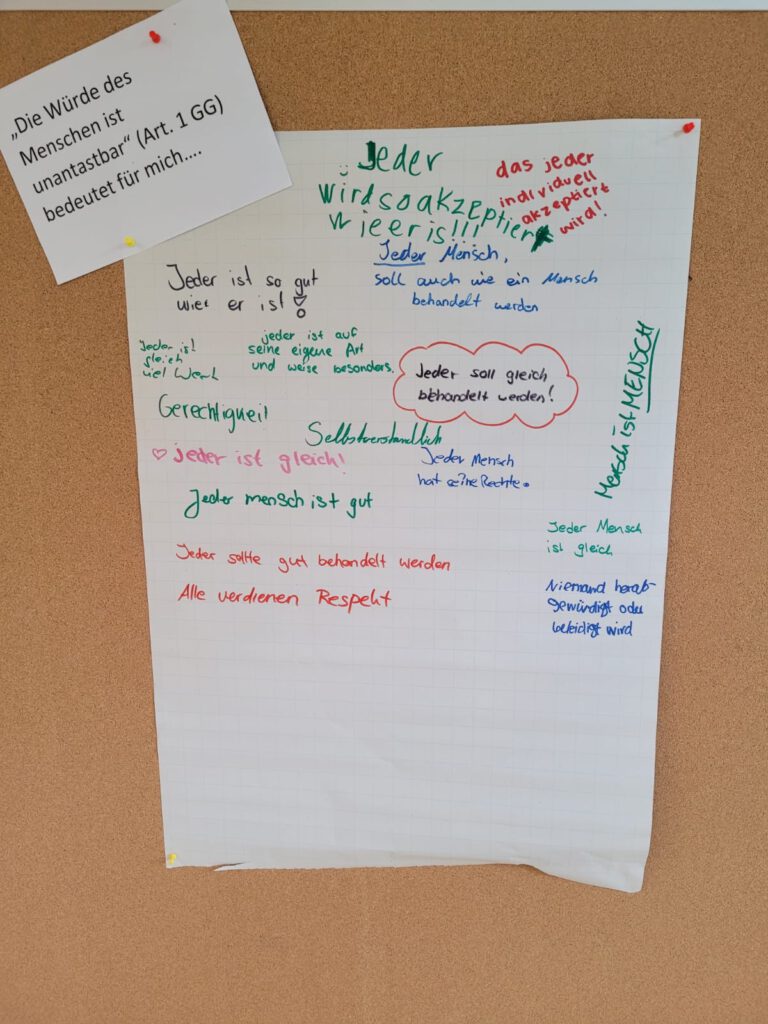 „Die Würde des
Menschen ist
unantastbar“ (Art. 1 GG)
bedeutet für mich....
Jeder
wird so akzeptiert
wie er is!!!
das jeder
individuell
akzeptiert
wird!
Jeder Mensch,
soll auch wie ein Mensch
behandelt werden
Jeder ist so gut
wier er ist!
Jeder ist
gleich
viel Wert
jeder ist auf
seine eigene Art
und weise besonders.
Jeder soll gleich
behandelt werden!
Mensch ist MENSCH
Gerechtigkeit
Selbstverständlich
♡ jeder ist gleich!
Jeder Mensch
hat seine Rechte.
Jeder mensch ist gut
Jeder Mensch
ist gleich
Jeder sollte gut behandelt werden
Alle verdienen Respekt
Niemand herab-
gewürdigt oder
beleidigt wird